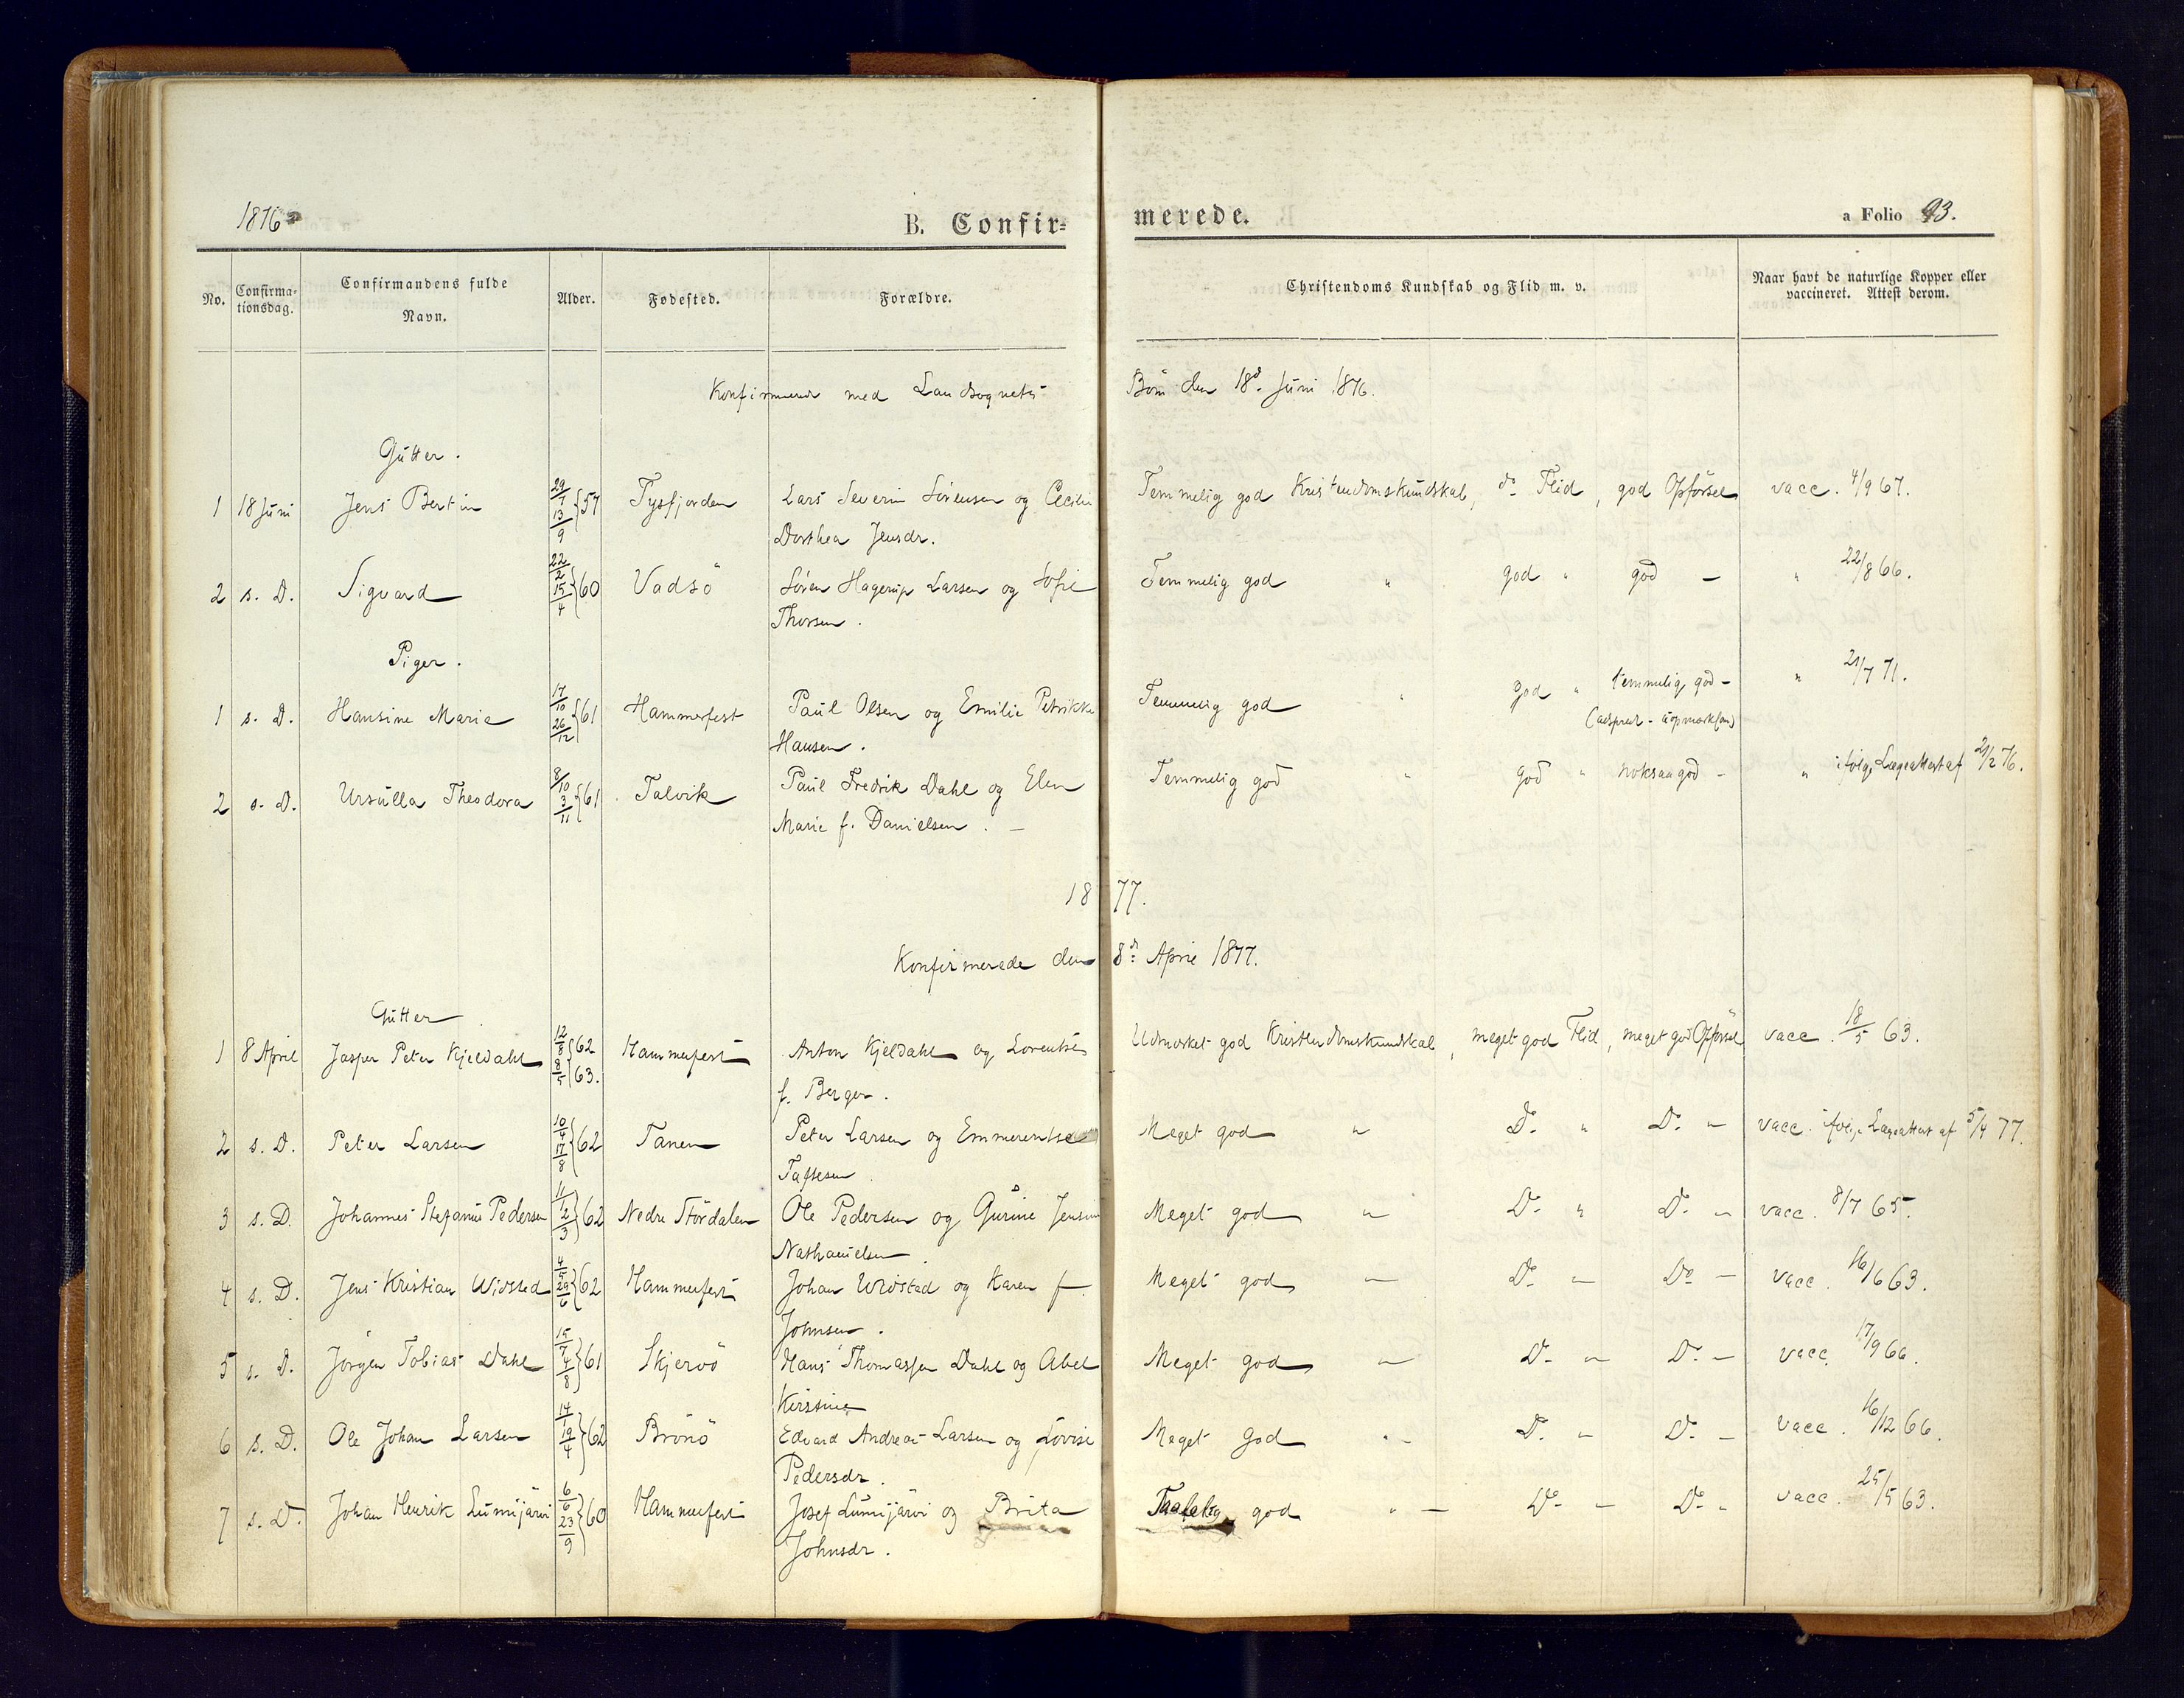 1876
B. Confirmerede.
a Folio 93.
No.
Confirmationsdag.
Confirmandens fulde Navn.
Alder.
Fødested.
Forældre.
Christendoms Kundskab og Flid m. v.
Naar havt de naturlige Kopper eller vaccineret. Attest derom.
Konfirmerede med Landsognets Børn den 18d. Juni 1876.
Gutter.
1 18 Juni Jens Bertin 29/7 13/9 57 Tysfjorden Lars Severin Sørensen og Cecilie Temmelig god Kristendomskundskab, do Flid, god Opførsel vacc. 4/9 67.
Dorthea Jensdr.
2 s. D. Sigvard 22/2 15/4 60 Vadsö Søren Hagerup Larsen og Sofie Temmelig god " god " god — " 22/8 66.
Thorsen.
Piger.
1 s. D. Hansine Maria 17/10 26/12 61 Hammerfest Paul Olsen og Emilie Petrikke Temmelig god " god " temmelig god - " 21/7 71.
Hansen.
2 s. D. Ursulla Theodora 8/10 3/11 61 Talvik Paul Fredrik Dahl og Elen Temmelig god " god " noksaa god - " ifølge Lægeattest af 21/2 76.
Marie f. Danielsen. —
1877.
Konfirmerede den 8d: April 1877.
Gutter
1 8 April Jasper Peter Kjeldahl 12/8 62 8/5 63. Hammerfest Anton Kjeldahl og Lorentse Udmærket god Kristendomskundskab, meget god Flid, meget god Opførsel vacc. 18/5 63.
f. Berger.
2 s. D. Peter Larsen 10/4 17/8 62 Tanen Peter Larsen og Emmerentse Meget god " Do " Do " vacc. ifølge Lægeattest af 5/4 77.
3 s. D. Johannes Stefanus Pedersen 11/1 2/3 62 Nedre Stördalen Ole Pedersen og Gurine Jensine Meget god " Do " Do " vacc. 8/7 65.
Nathanielsen.
4 s. D. Jens Kristian Widsted 4/5 29/6 62 Hammerfest Johan Widstad og Karen f. Meget god " Do " Do — vacc. 16/6 63.
Johnsen.
5 s. D. Jørgen Tobias Dahl 15/7 4/8 61 Skjervö Hans Thomassen Dahl og Abel Meget god " Do " Do — vacc. 17/9 66.
Kirstine
6 s. D. Ole Johan Larsen 14/1 19/4 62 Brönö Edvard Andreas Larsen og Lovise Meget god " Do " Do — vacc. 16/12 66.
Pedersdr.
7 s. D. Johan Henrik Lumijärvi 6/6 23/9 60 Hammerfest Josef Lumijärvi og Brita Taalelig god " — Do — Do " vacc. 25/5 63.
Johnsdr.